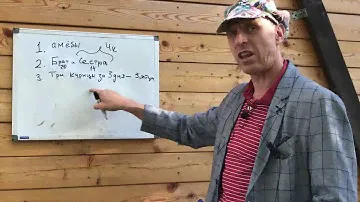 1. амёбы 4к
2. Брат и Сестра
20 14
3 Три курицы за 3 дня – 3 яйца